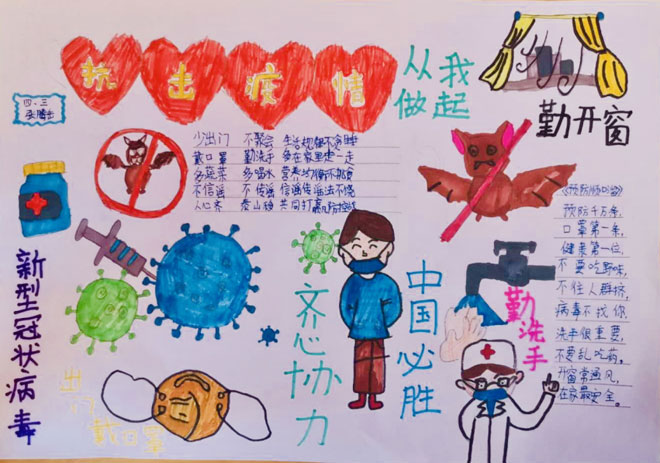 抗击疫情
从我
做起
勤开窗
四.三
少出门 不聚会 生活规律不贪睡
戴口罩 勤洗手 多在家里走一走
多蔬菜 多喝水 营养均衡不挑食
不信谣 不传谣 信谣传谣法不饶
人心齐 泰山移 共同打赢防控战
《预防顺口溜》
预防千万条,
口罩第一条,
健康第一位,
不要吃野味,
不往人群挤,
病毒不找你,
洗手很重要,
不要乱吃药。
开窗常通风,
在家最安全。
新型冠状病毒
齐心协力
中国必胜
勤洗手
出行戴口罩